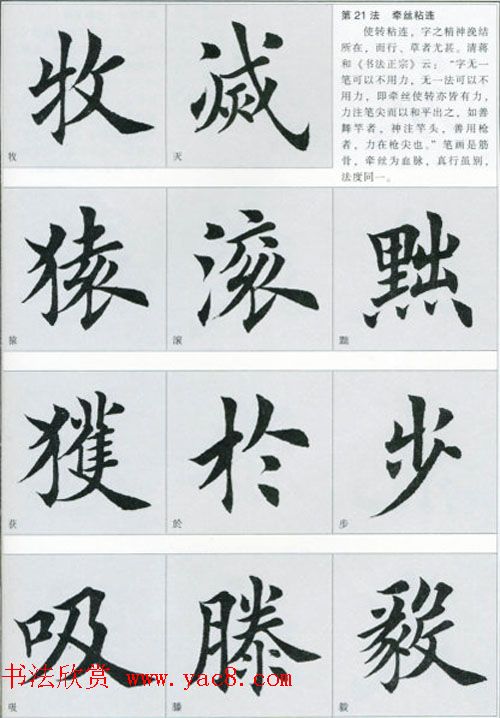 第21法 牵丝粘连
使转粘连，字之精神挽结
所在，而行、草者尤甚。清蒋
和《书法正宗》云：“字无一
笔可以不用力，无一法可以不
用力，即牵丝使转亦皆有力，
力注笔尖而以和平出之，如善
舞竿者，神注竿头，善用枪者，
力在枪尖也。”笔画是筋
骨，牵丝为血脉，真行虽别，
法度同一。
牧 滅
牧 天
猿 滚 黜
猿 滚 黜
獲 於 步
获 於 步
吸 滕 毅
吸 滕 毅
书法欣赏 www.yac8.com